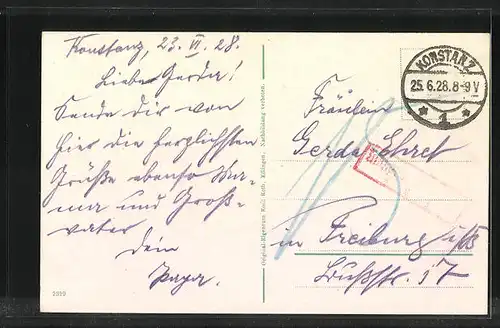 Konstanz, 23. VI. 28.
Liebe Gerda!
Sende dir von
hier die herzlichsten
Grüße ebenso Ma-
ma und Groß-
vater
Dein
Papa.
2999
Original-Eigentum Rob. Rath, Kißlegg. Nachbildung verboten.
KONSTANZ
25.6.28.8-9V
* 1 *
18
Fräulein
Gerda Ehret
in Freiburg i/B
17